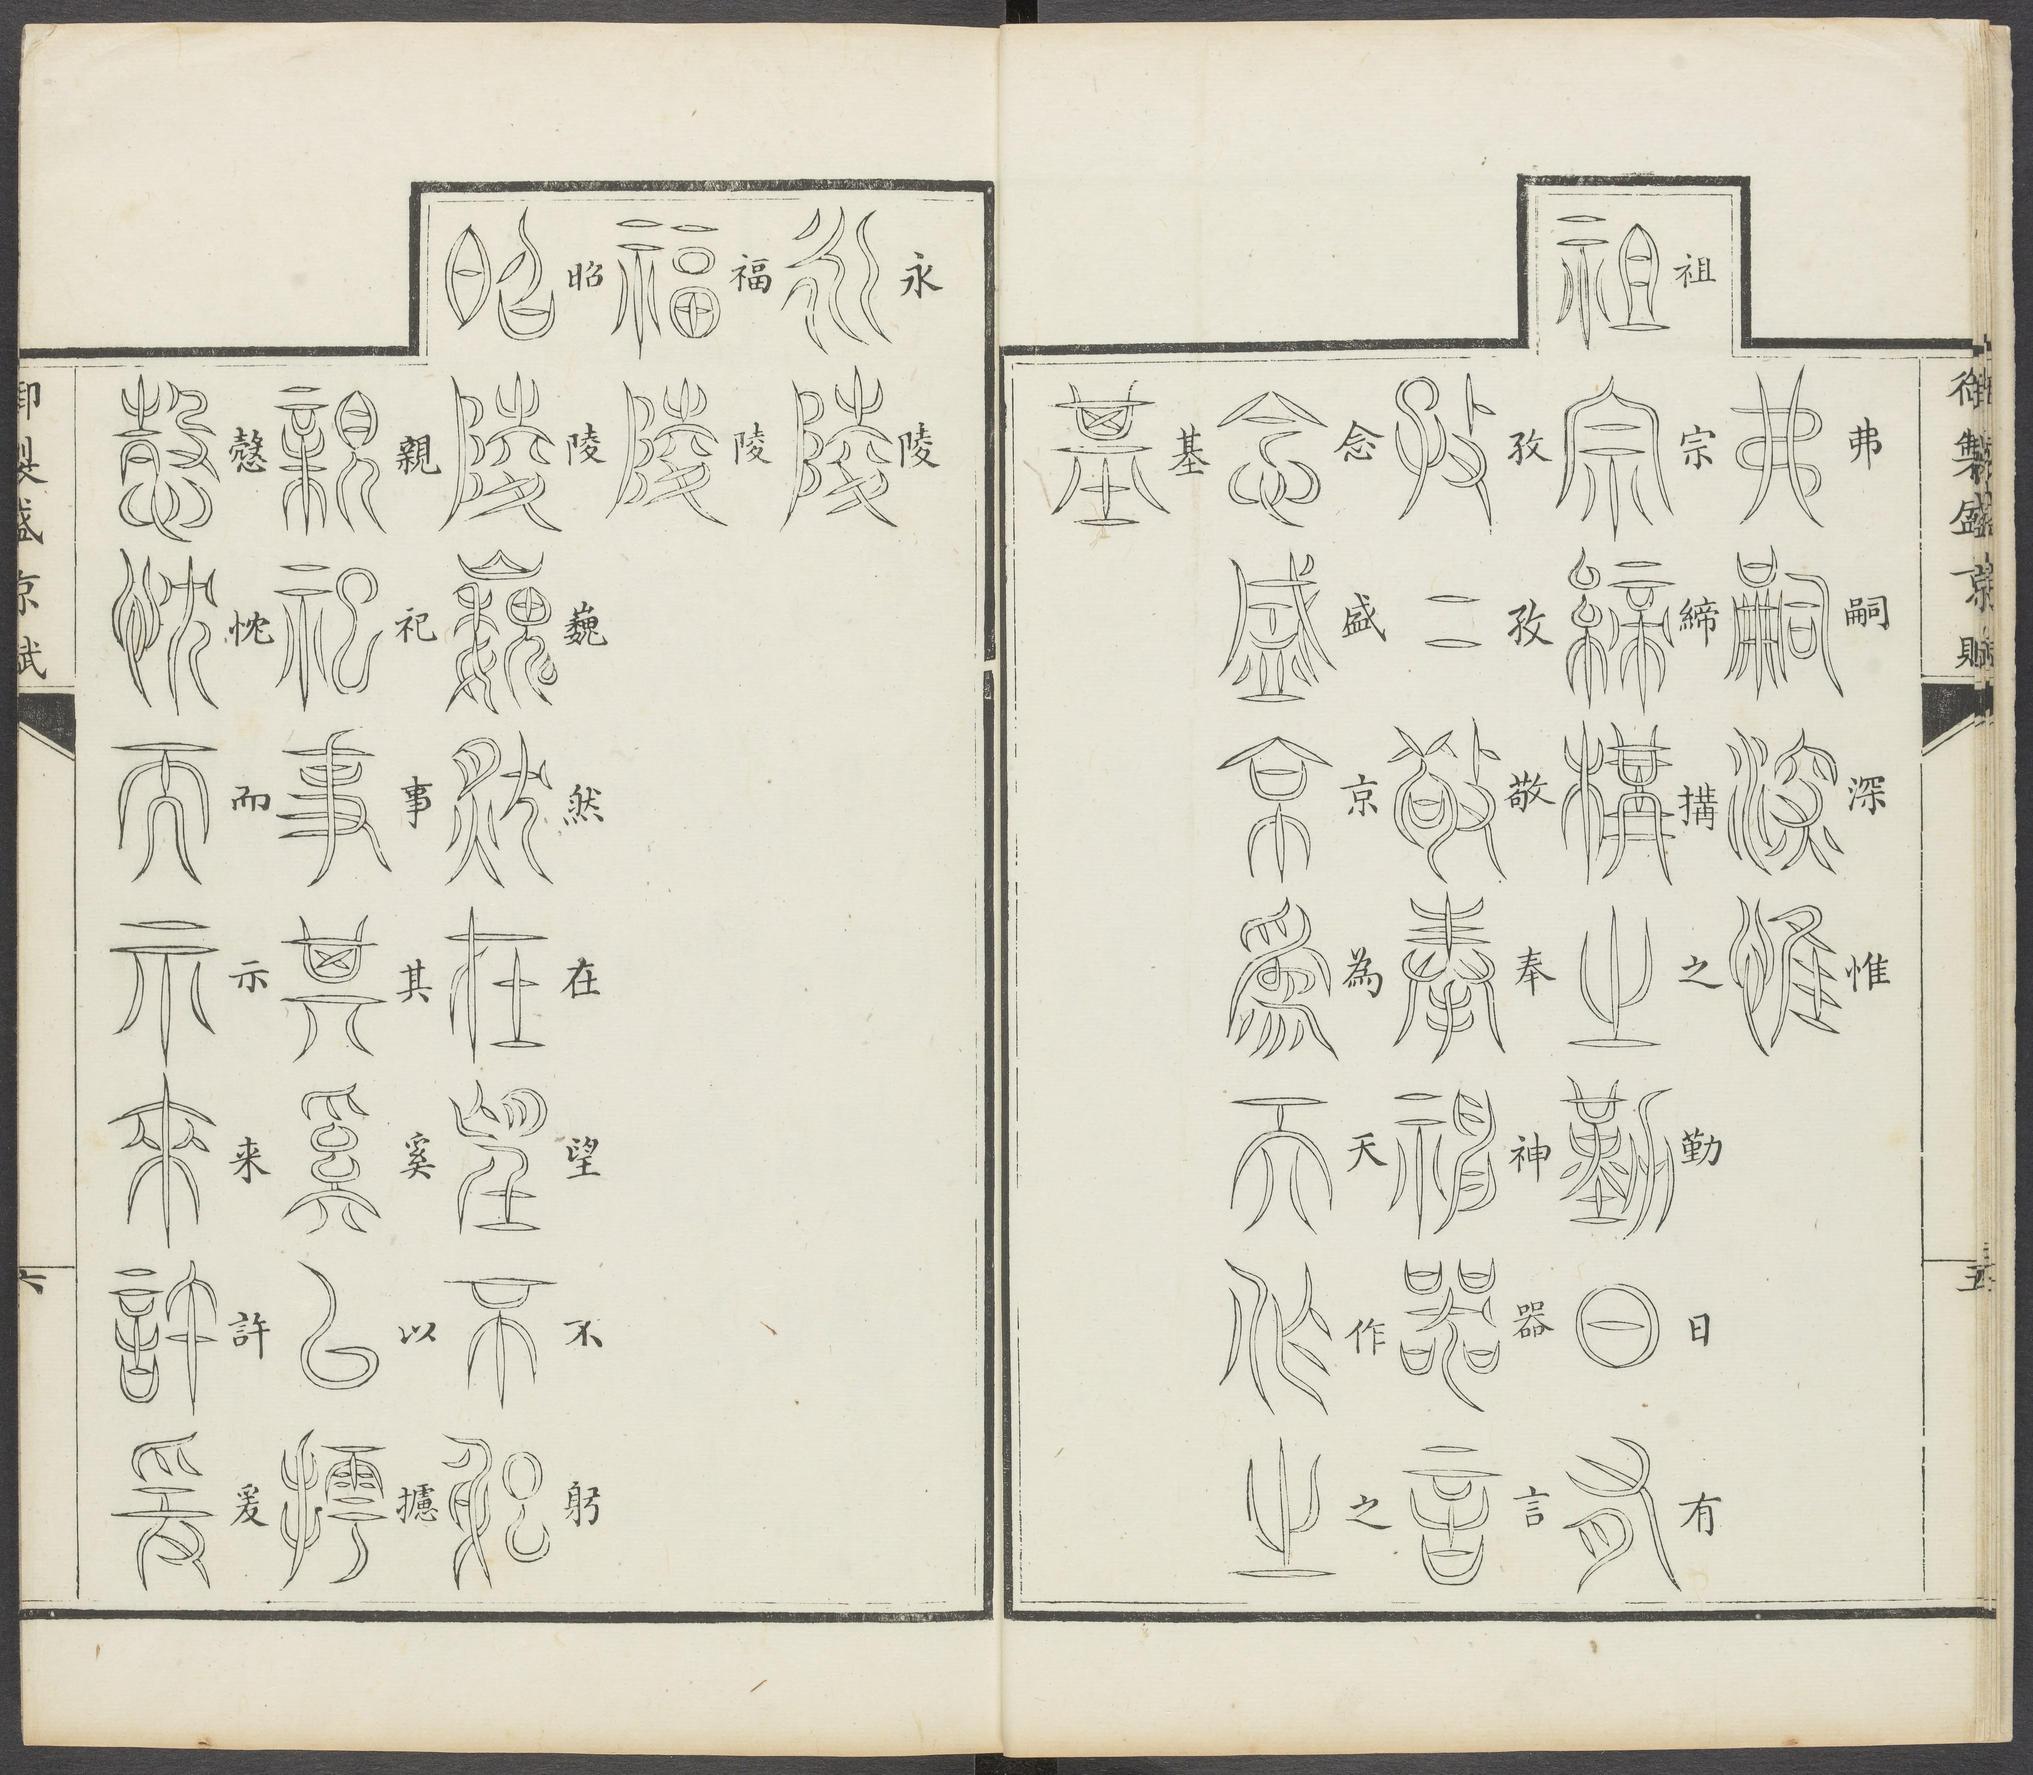 弗嗣深惟
祖宗締搆之勤日有
孜孜敬奉神器言
念盛京為天作之
基
永陵
福陵
昭陵巍然在望不躬
親祀事其奚以攄
慤忱而示来許爰
御製盛京賦
六